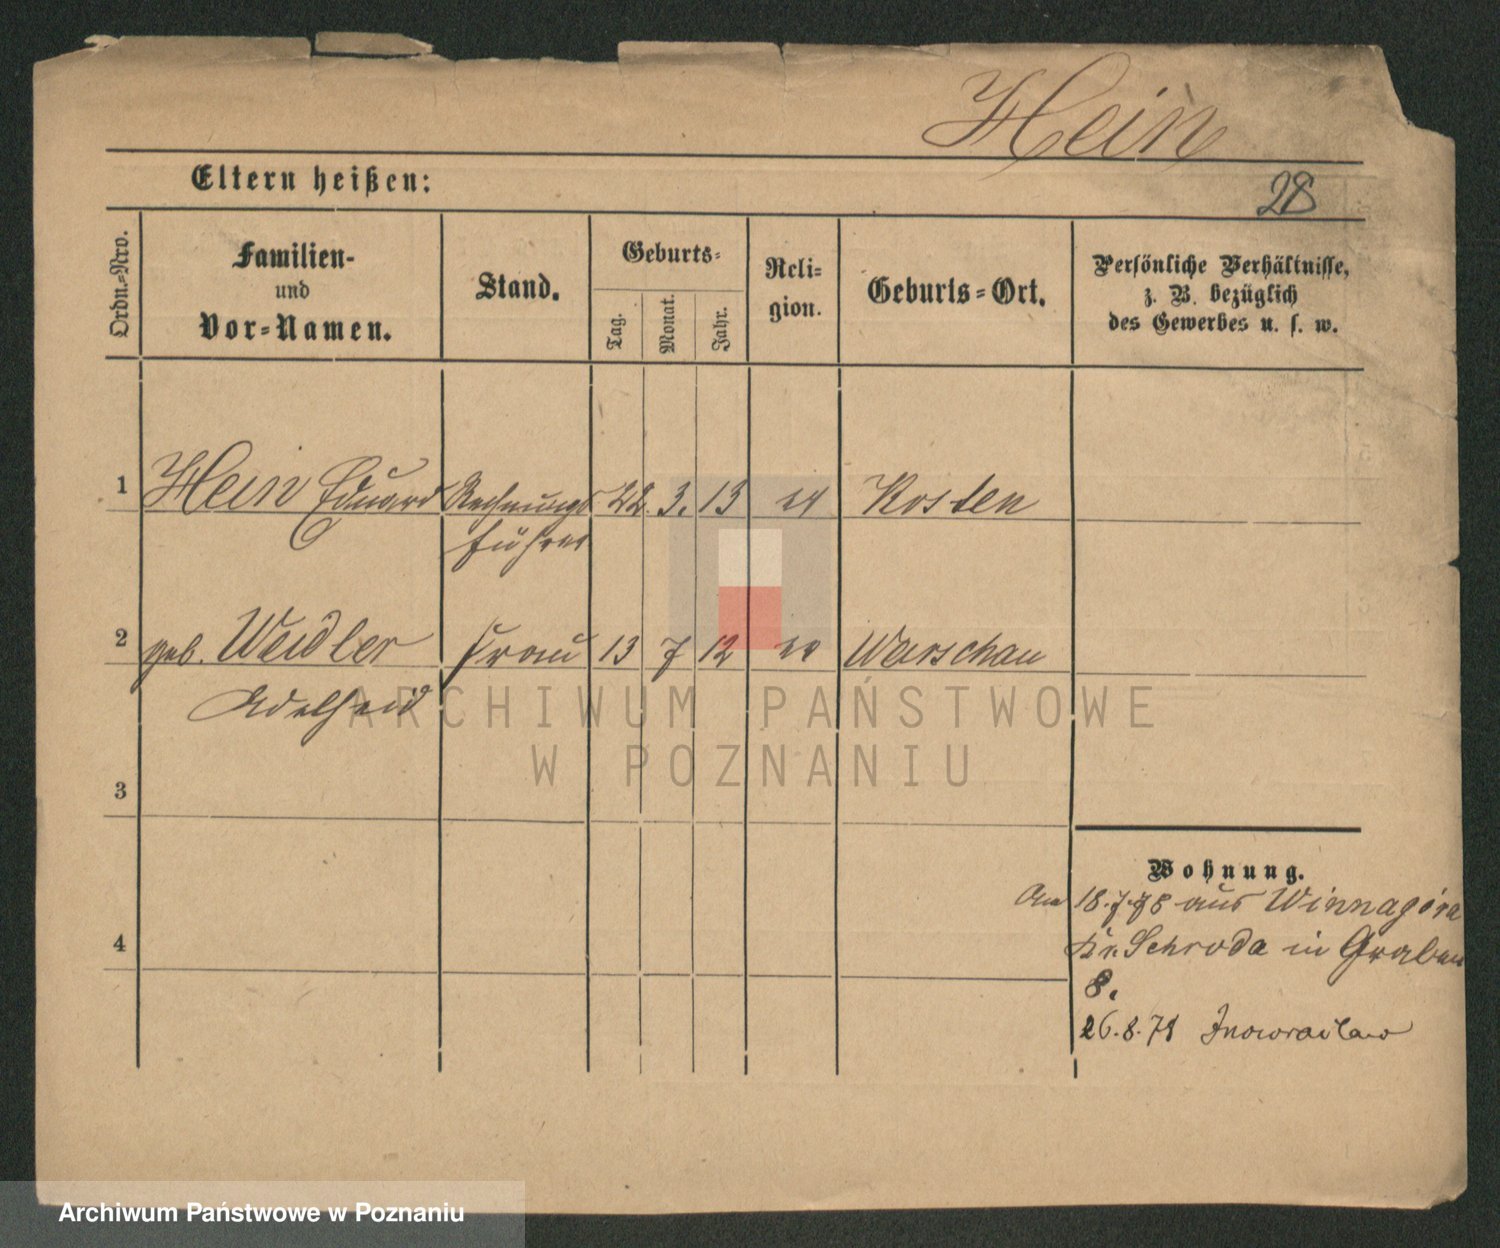 Hein
Eltern heißen:
28
Ordn.-Nro.
Familien-
und
Vor-Namen.
Stand.
Geburts-
Tag.
Monat.
Jahr.
Reli-
gion.
Geburts-Ort.
Persönliche Verhältnisse,
z. B. bezüglich
des Gewerbes u. s. w.
1 Hein Eduard Rechnungs 22. 3. 13 Kosten
führer
2 geb. Weidler Frau 13 7 12 Warschau
Adelheid
ARCHIWUM PAŃSTWOWE
W POZNANIU
3
4
Wohnung.
Am 18.7.78 aus Winnagóra
Kr. Schroda in Graben
8.
26.8.78 Inowraclaw
Archiwum Państwowe w Poznaniu